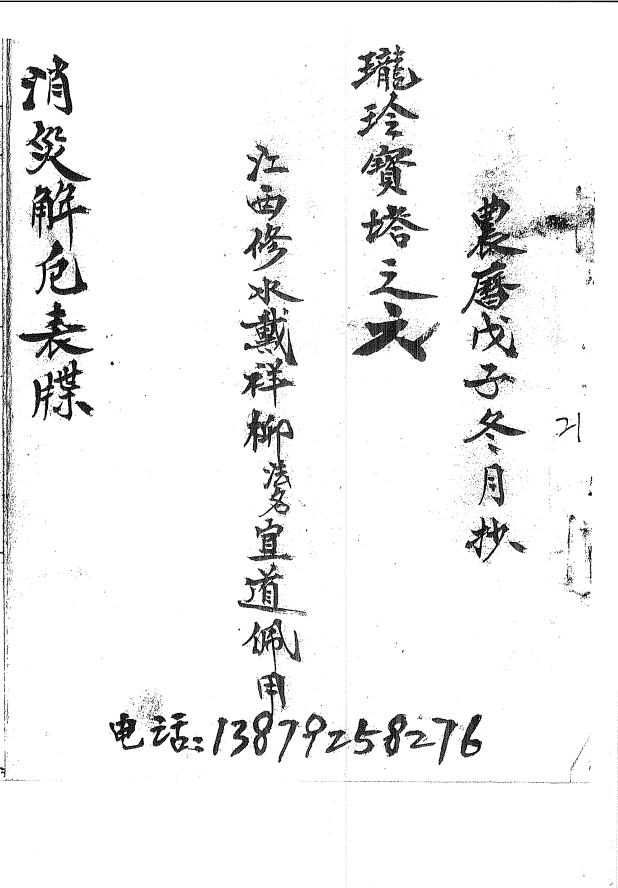 農曆戊子冬月抄
瓏玲寶塔之文
江西修水戴祥柳法名宣道佩用
消災解危表牒
电话:13879258276
21